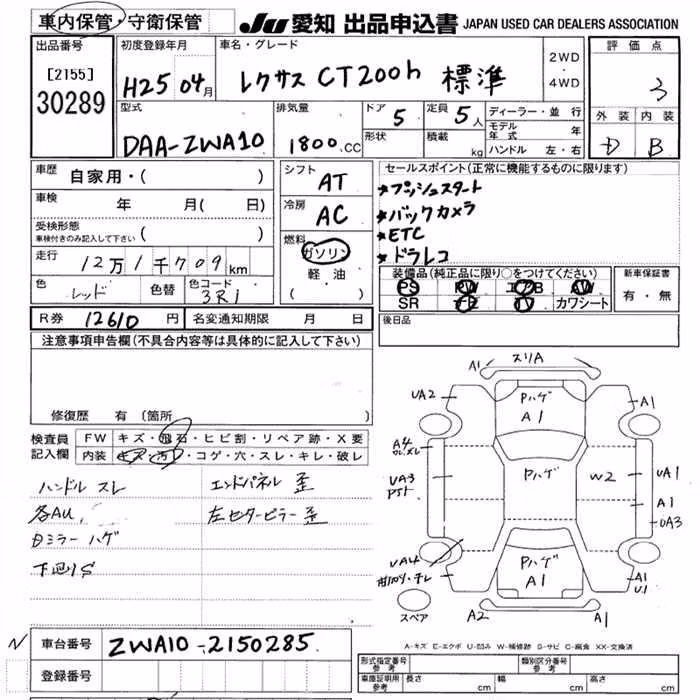 車内保管・守衛保管 JU 愛知 出品申込書 JAPAN USED CAR DEALERS ASSOCIATION
出品番号 初度登録年月 車名・グレード 評価点
[2155]
30289 H25 04月 レクサス CT200h 標準 2WD・4WD 3
型式 排気量 ドア 5 定員 5人 ディーラー・並行 外装 内装
DAA-ZWA10 1800.CC 形状 積載 kg モデル年式 年 D B
ハンドル 左・右
車歴 自家用・( ) シフト AT セールスポイント(正常に機能するものに限ります)
★プッシュスタート
車検 年 月( 日) 冷房 AC ★バックカメラ
受検形態 ( ) ★ETC
車検付きのみ記入して下さい
燃料 ガソリン ★ドラレコ
走行 12万1千709km 軽油 装備品(純正品に限り○をつけてください) 新車保証書
色 レッド 色替 色コード 3R1 ( ) PS PW エアB AW 有・無
SR ナビ TV カワシート
R券 12610円 名変通知期限 月 日 後日品
注意事項申告欄(不具合内容等は具体的に記入して下さい)
修復歴 有(箇所
検査員 FW キズ・飛石・ヒビ割・リペア跡・X要
記入欄 内装 キズ・汚レ・コゲ・穴・スレ・キレ・破レ
ハンドル スレ エンドパネル 歪
各AU, 左センターピラー 歪
ミラー ハゲ
下廻りS
A1 スリA
UA2 Pハゲ A1 A1
A4
UA3 Pハゲ W2 UA1
A1
UA3
UA4 Pハゲ A1 A1
U1
スペア A2 A1
A-キズ E-エクボ U-凹み W-補修跡 S-サビ C-腐食 XX-交換済
車台番号 ZWA10-2150285
登録番号 形式指定番号 参考 類別区分番号 参考
車庫証明用 参考 長さ cm 幅 cm 高さ cm